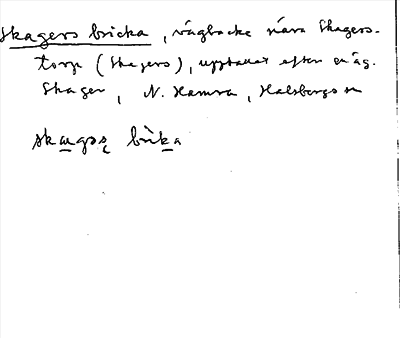 Skagers bricka, vägbacke nära Skagers-
torp (Skagers), uppkallat efter en äg.
Skager, N. Hamra, Halsbergs sn
skɑgoʂ brìka